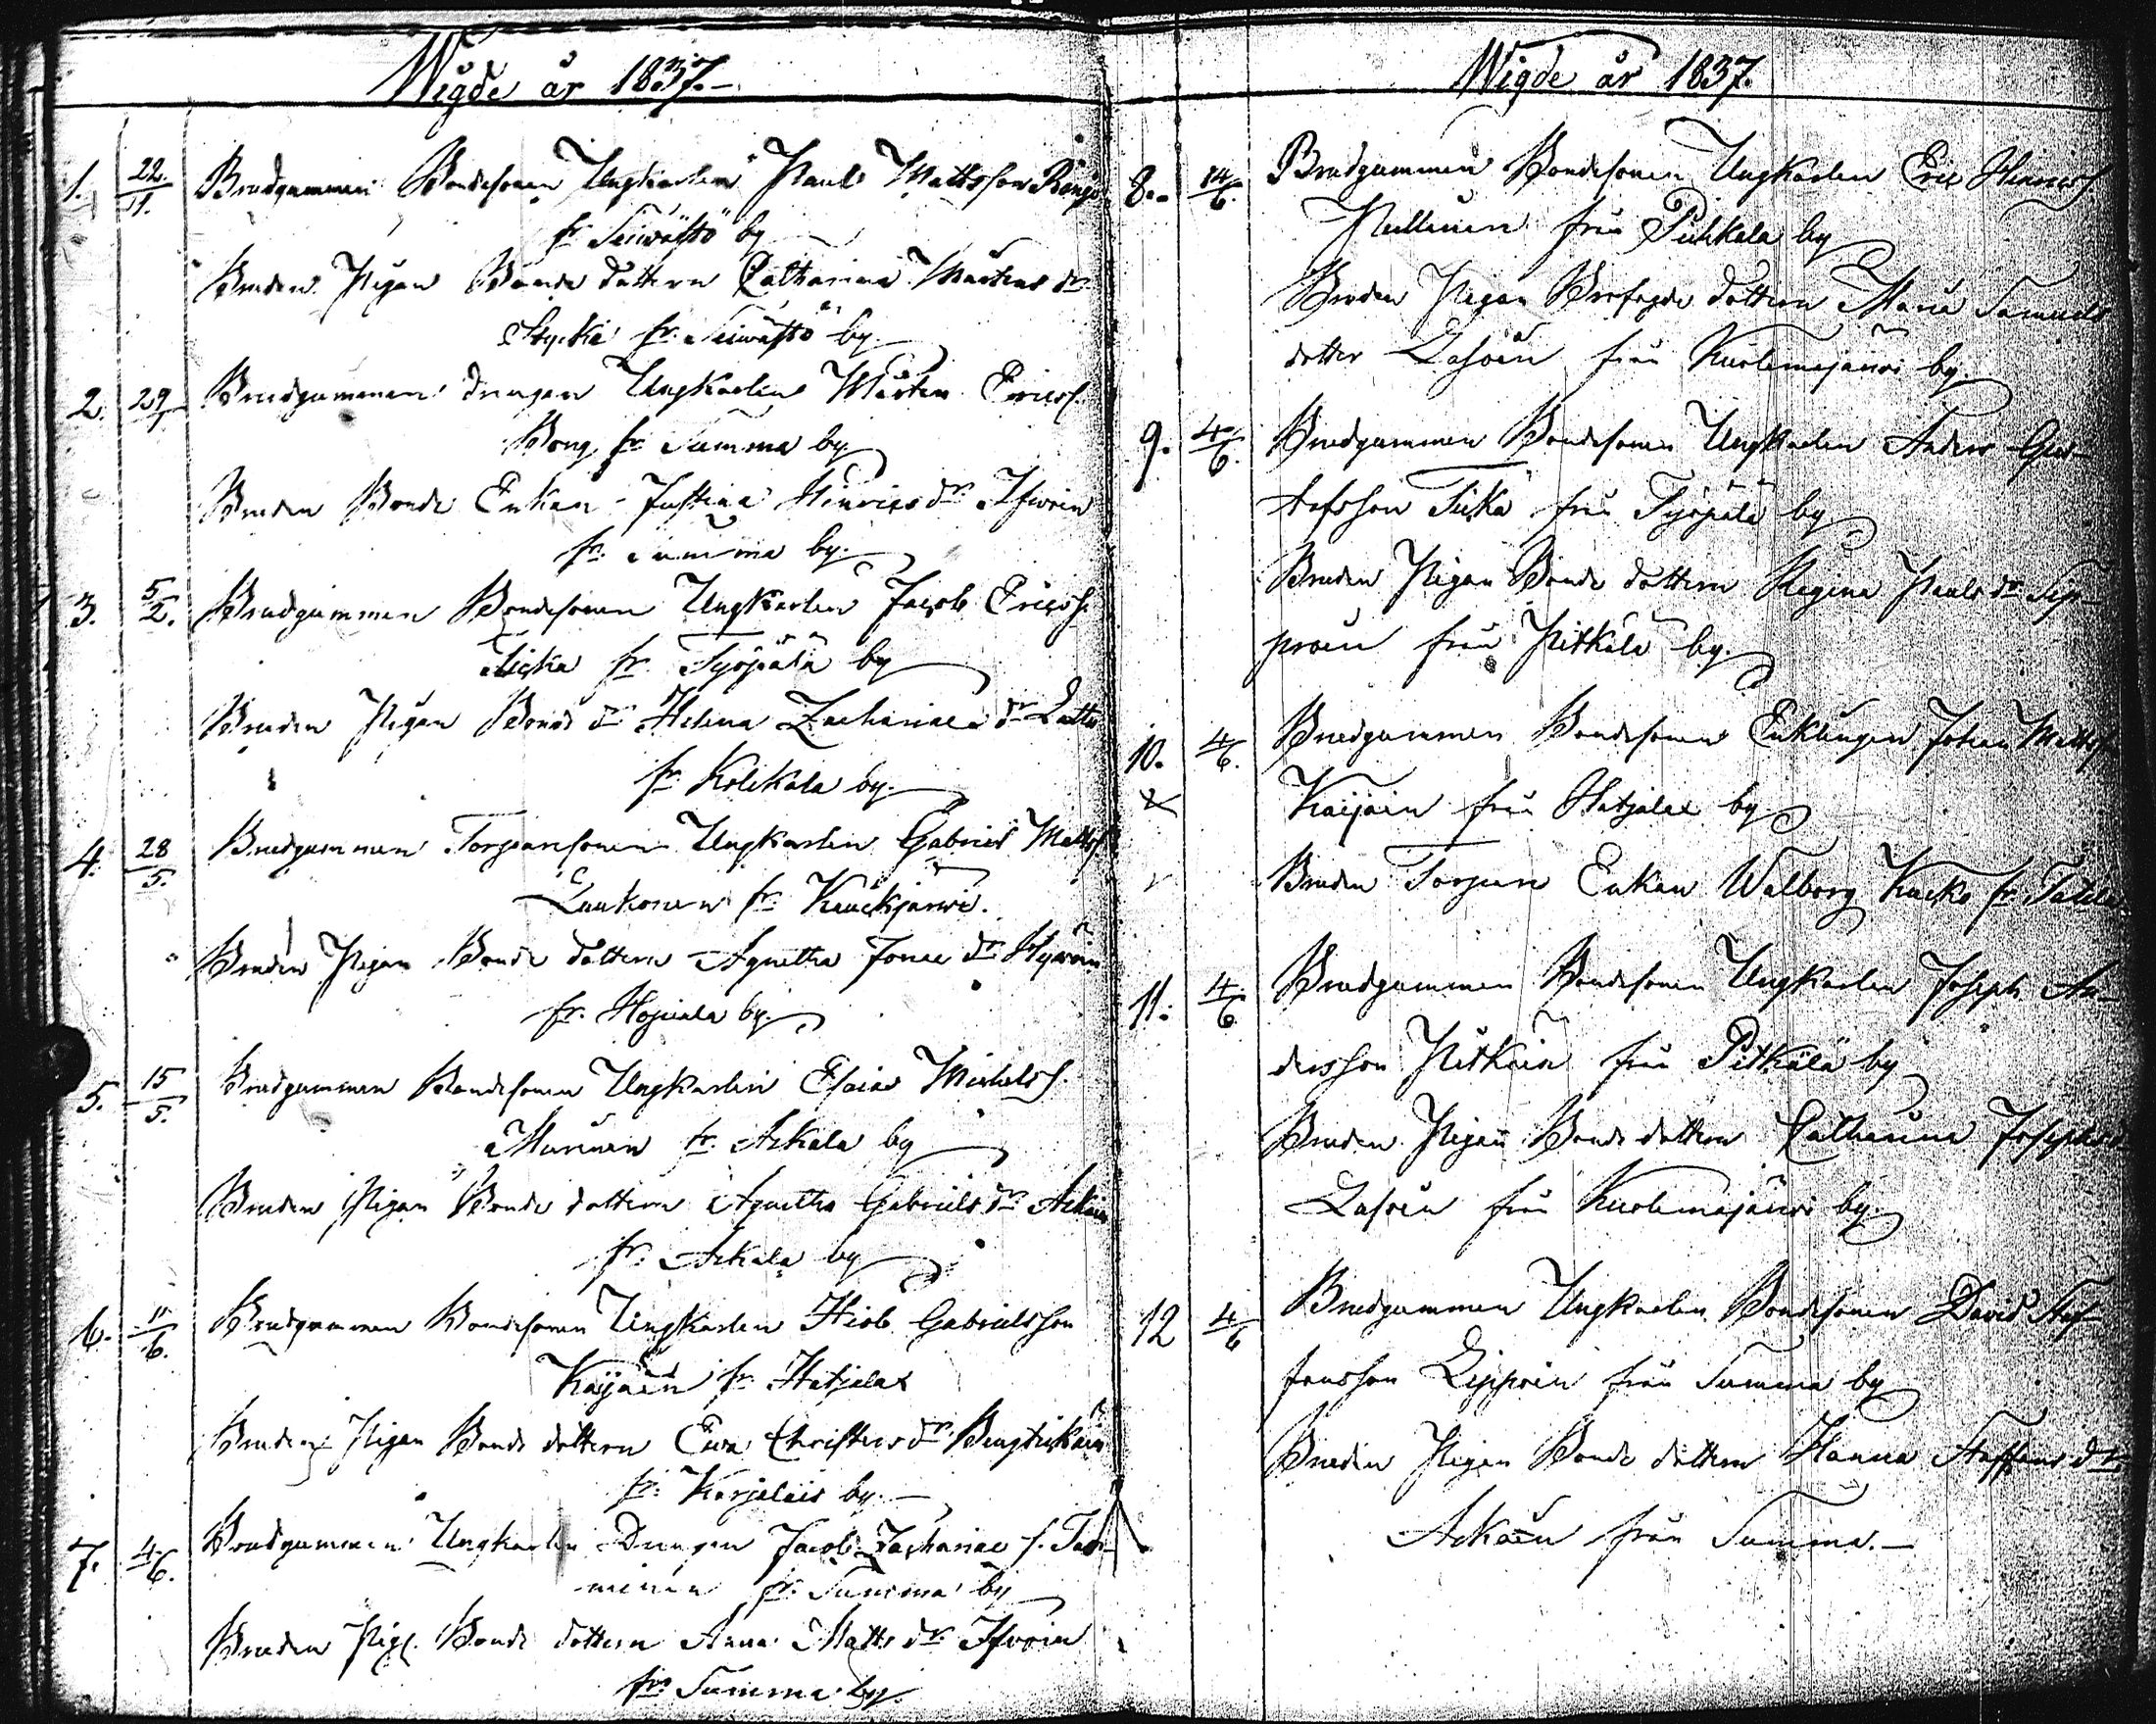 Wigde år 1837.
1. 22/1. Brudgummen Bondesonen Ungkarlen Paul Mattsson
fr Seiwästö by
Bruden Pigan Bonde dottern Catharina Mårtens dr
Stycke fr. Seiwästö by
2. 29/1 Brudgummen drängen Ungkarlen Mårten Ericss.
Bong fr Summa by
Bruden Bonde Enkan Justina Hinrics dr
fr. Summa by.
3. 5/2. Brudgummen Bondesonen Ungkarlen Jacob Ericss.
fr. Työpälä by
Bruden Pigan Bonde dr Helena Zachariae dr Latto
fr Kolikala by.
4. 28/5. Brudgummen Torparesonen Ungkarlen Gabriel Matts
Laukonen fr Kaukjärwi.
Bruden Pigan Bonde dottern Agnetha Jonae dr
fr. by.
5. 15/5. Brudgummen Bondesonen Ungkarlen Esaias Michelss.
Murinen fr. Askala by
Bruden Pigan Bonde dottern Agnetha Gabriels dr
fr. Askala by
6. /6. Brudgummen Bondesonen Ungkarlen Hiob Gabrielsson
Kaijain fr Hatjalax
Bruden Pigan Bonde dottern Ewa Christers dr
fr. Karjalais by.
7. 4/6. Brudgummen Ungkarlen Drengen Jacob Zachariae s. Tam-
minen fr. Summa by
Bruden Pig. Bonde dottern Anna Matts dr
fr. Summa by.
Wigde år 1837.
8. /6. Brudgummen Bondesonen Ungkarlen Eric Hinrics
från Puhkala by
Bruden Pigan dottern Maria Samuels
dotter från Kuolemajärwi by.
9. 4/6. Brudgummen Bondesonen Ungkarlen Anders Gus-
tafsson från Työpälä by
Bruden Pigan Bonde dottern Regina Pauls dr Sip-
proin från Pitkälä by.
10. 4/6. Brudgummen Bondesonen Enklingen Johan Matts
Kaijain från Hatjalax by
Bruden Torpare Enkan Walborg Kucko fr.
11. 4/6. Brudgummen Bondesonen Ungkarlen Joseph An-
dersson Pitkäin från Pitkälä by
Bruden Pigan Bonde dottern Catharina Josephs
från Kuolemajärwi by.
12 4/6 Brudgummen Ungkarlen Bondesonen David Stef-
fansson Lipproin från Summa by
Bruden Pigan Bonde dottern Hanna Staffans dr
Askain från Summa.